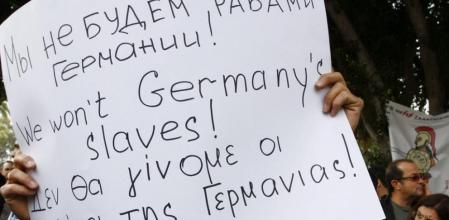 Мы не БУДЕМ РАБАМИ
ГЕРМАНИИ!
We won't Germany's
slaves!
Δεν θα γίνομε οι
της Γερμανιας!